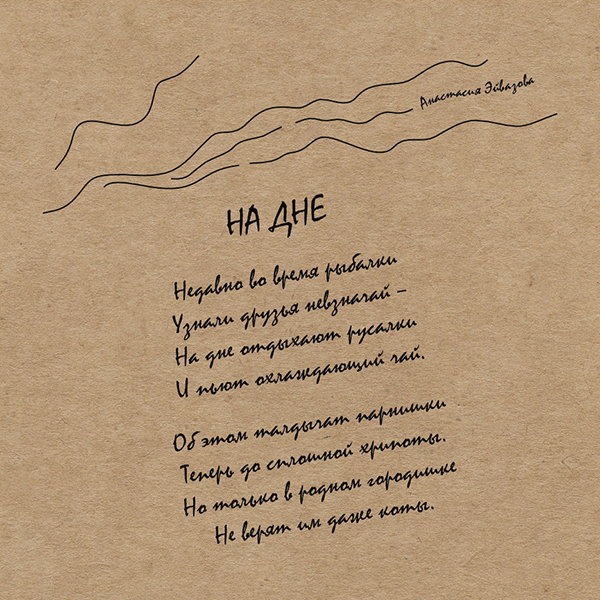 Анастасия Эйвазова
НА ДНЕ
Недавно во время рыбалки
Узнали друзья невзначай –
На дне отдыхают русалки
И пьют охлаждающий чай.
Об этом талдычат парнишки
Теперь до сплошной хрипоты.
Но только в родном городишке
Не верят им даже коты.